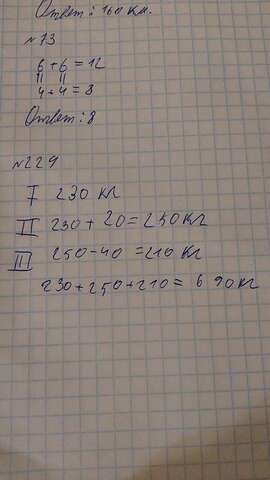 Ответ: 160 км.
№73
6 + 6 = 12
|| ||
4 + 4 = 8
Ответ: 8
№229
I 230 кг
II 230 + 20 = 250 кг
III 250 - 40 = 210 кг
230 + 250 + 210 = 690 кг